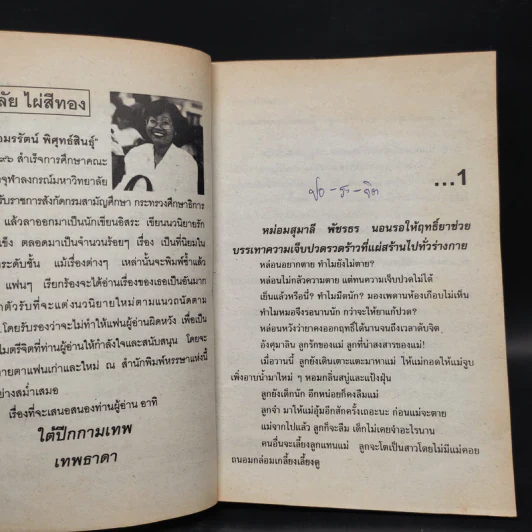 ลัย ไผ่สีทอง
อมรรัตน์ พิศุทธ์สินธุ์"
๙๖ สำเร็จการศึกษาคณะ
จุฬาลงกรณ์มหาวิทยาลัย
รับราชการสังกัดกรมสามัญศึกษา กระทรวงศึกษาธิการ
แล้วลาออกมาเป็นนักเขียนอิสระ เขียนนวนิยายรัก
ตลอดมาเป็นจำนวนร้อยๆ เรื่อง เป็นที่นิยมใน
ระดับชั้น แม้เรื่องต่างๆ เหล่านั้นจะพิมพ์ซ้ำแล้ว
แฟนๆ เรียกร้องจะได้อ่านเรื่องของเธอเป็นอันมาก
ตัวรับที่จะแต่งนวนิยายใหม่ตามแนวถนัดตาม
โดยรับรองว่าจะไม่ทำให้แฟนผู้อ่านผิดหวัง เพื่อเป็น
ไมตรีจิตที่ท่านผู้อ่านให้กำลังใจและสนับสนุน โดยจะ
ายตาแฟนเก่าและใหม่ ณ สำนักพิมพ์หรรษาแห่งนี้
ย่างสม่ำเสมอ
เรื่องที่จะเสนอสนองท่านผู้อ่าน อาทิ
ใต้ปีกกามเทพ
เทพธาดา
...1
หม่อมสุมาลี พัชรธร นอนรอให้ฤทธิ์ยาช่วย
บรรเทาความเจ็บปวดรวดร้าวที่แผ่สร้านไปทั่วร่างกาย
หล่อนอยากตาย ทำไมยังไม่ตาย?
หล่อนไม่กลัวความตาย แต่ทนความเจ็บปวดไม่ได้
เย็นแล้วหรือนี่? ทำไมมืดนัก? มองเพดานห้องเกือบไม่เห็น
ทำไมหมอจึงรอนานนัก กว่าจะให้ยาแก้ปวด?
หล่อนหวังว่ายาคงออกฤทธิ์ได้นานจนถึงเวลาดับจิต
อังศุมาลิน ลูกรักของแม่ ลูกที่น่าสงสารของแม่!
เมื่อวานนี้ ลูกยังเดินเตาะแตะมาหาแม่ ให้แม่กอดให้แม่จูบ
เพิ่งอาบน้ำมาใหม่ ๆ หอมกลิ่นสบู่และแป้งฝุ่น
ลูกยังเด็กนัก อีกหน่อยก็คงลืมแม่
ลูกจ๋า มาให้แม่อุ้มอีกสักครั้งเถอะนะ ก่อนแม่จะตาย
แม่จากไปแล้ว ลูกก็จะลืม เด็กไม่เคยจำอะไรนาน
คนอื่นจะเลี้ยงลูกแทนแม่ ลูกจะโตเป็นสาวโดยไม่มีแม่คอย
ถนอมกล่อมเกลี้ยงเลี้ยงดู